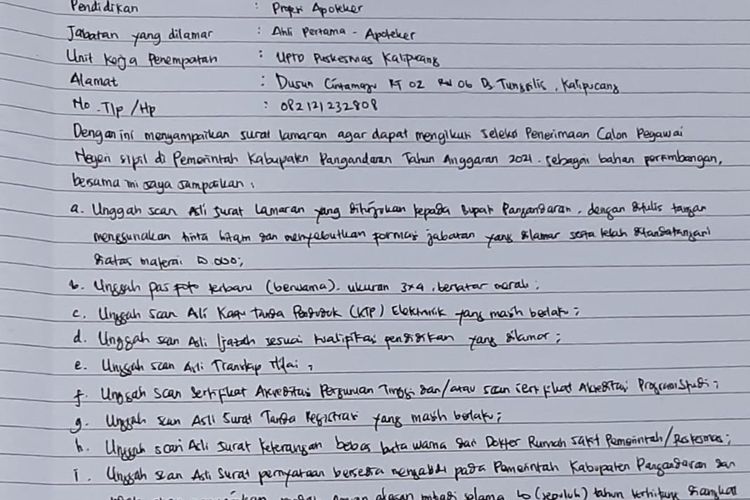 Pendidikan : Profesi Apoteker
Jabatan yang dilamar : Ahli Pertama - Apoteker
Unit Kerja Penempatan : UPTD Puskesmas Kalipucang
Alamat : Dusun RT 02 RW 06 Ds Tunggilis, Kalipucang
No. Tlp / Hp : 082121232808
Dengan ini menyampaikan surat lamaran agar dapat mengikuti Seleksi Penerimaan Calon Pegawai
Negeri Sipil di Pemerintah Kabupaten Pangandaran Tahun Anggaran 2021. Sebagai bahan pertimbangan,
bersama ini saya sampaikan :
a. Unggah scan Asli Surat Lamaran yang ditujukan kepada Bupati Pangandaran, dengan ditulis tangan
menggunakan tinta hitam dan menyebutkan formasi jabatan yang dilamar serta telah ditandatangani
diatas materai 10.000;
b. Unggah pas foto terbaru (berwarna). ukuran 3x4, berlatar merah;
c. Unggah scan Asli Kartu Tanda Penduduk (KTP) Elektronik yang masih berlaku;
d. Unggah scan Asli Ijazah sesuai kualifikasi pendidikan yang dilamar;
e. Unggah scan Asli Transkip Nilai;
f. Unggah Scan Sertifikat Akreditasi Perguruan Tinggi dan/atau scan sertifikat Akreditasi Program Studi;
g. Unggah scan Asli Surat Tanda Registrasi yang masih berlaku;
h. Unggah scan Asli Surat keterangan bebas buta warna dari Dokter Rumah Sakit Pemerintah/Puskesmas;
i. Unggah scan Asli Surat pernyataan bersedia mengabdi pada Pemerintah Kabupaten Pangandaran dan
selama 10 (sepuluh) tahun terhitung